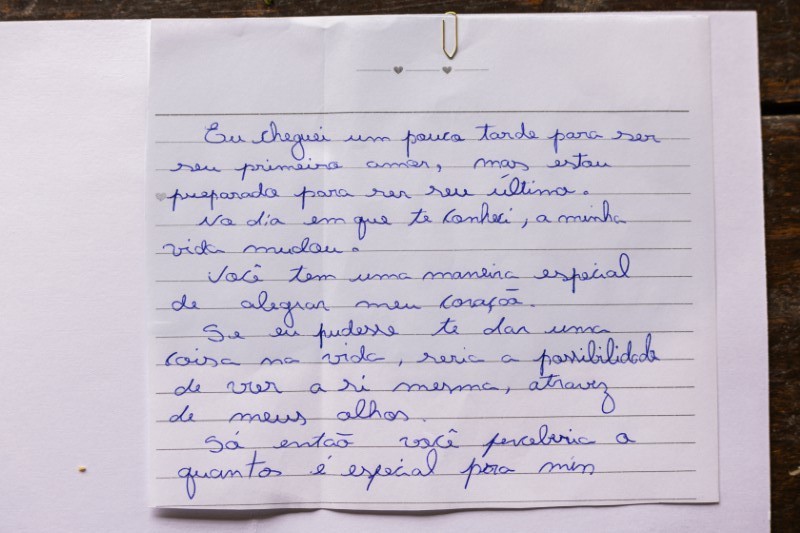 Eu cheguei um pouco tarde para ser
seu primeiro amor, mas estou
preparado para ser seu último.
No dia em que te conheci, a minha
vida mudou.
Você tem uma maneira especial
de alegrar meu coração.
Se eu pudesse te dar uma
coisa na vida, seria a possibilidade
de ver a si mesma, atravez
de meus olhos.
Só então você perceberia o
quantos é especial para mim